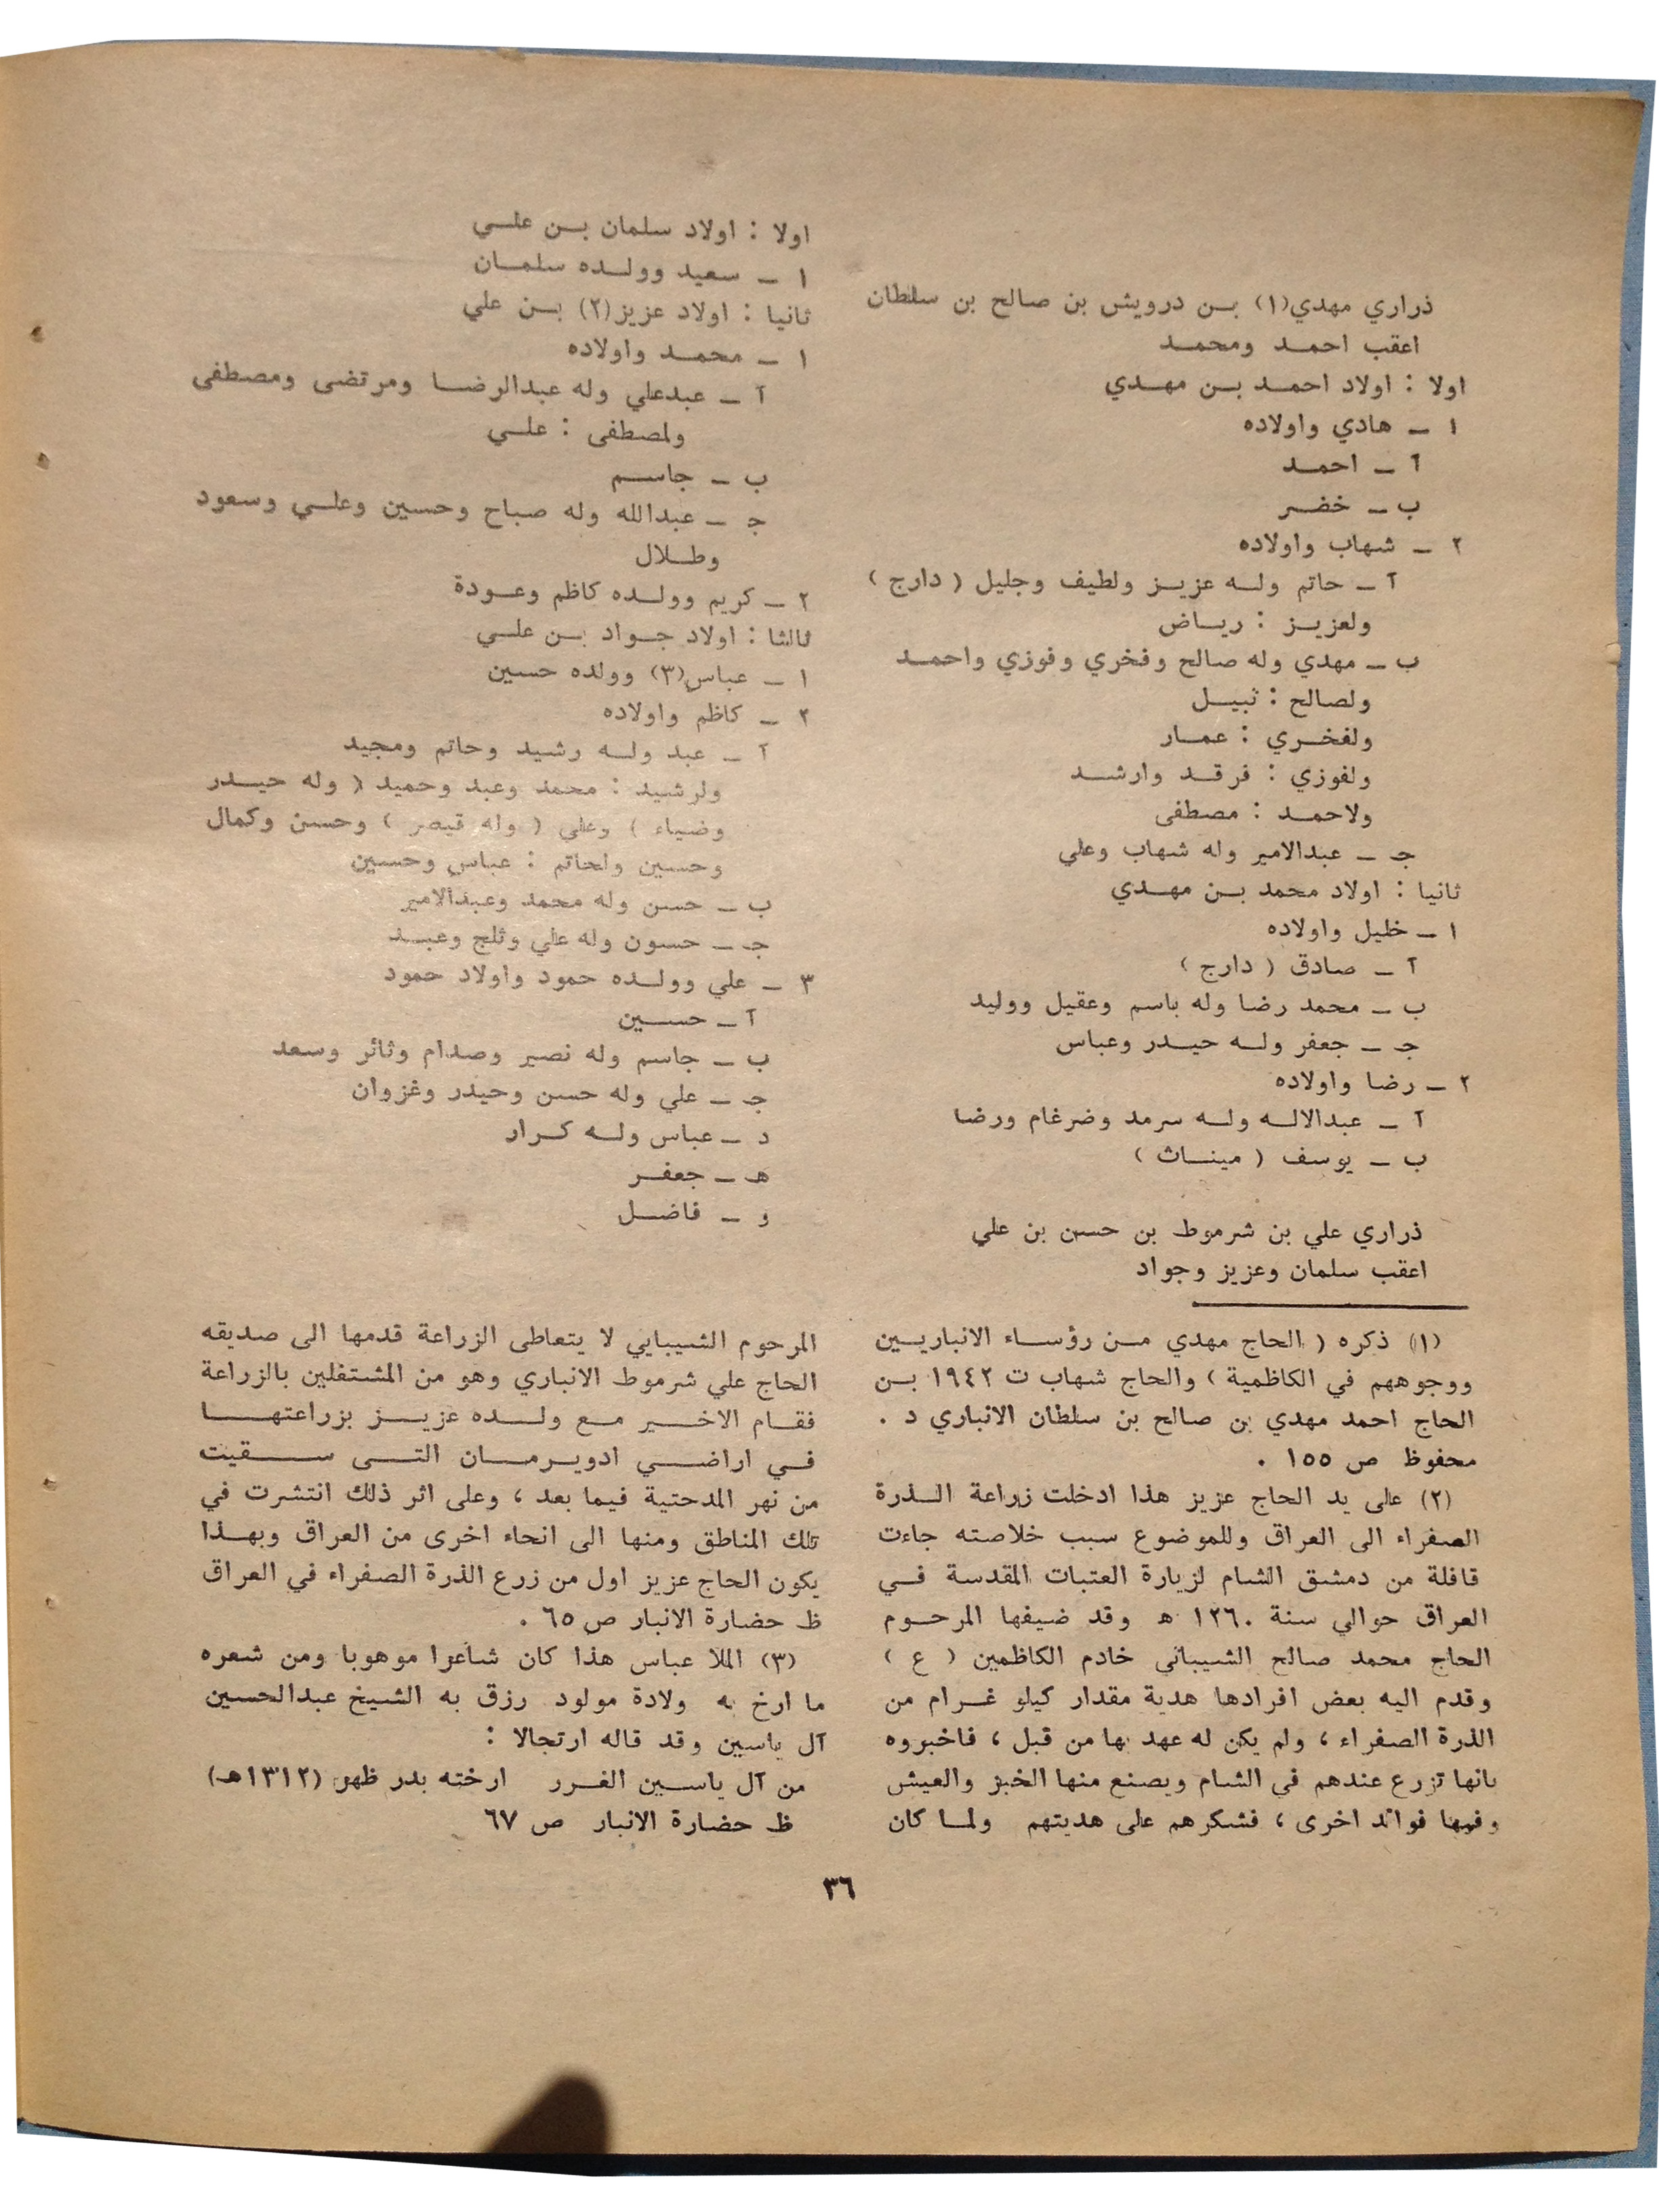 ذراري مهدي(١) بـن درويش بن صالح بن سلطان
اعقب احمد ومحمد
اولا : اولاد احمد بن مهدي
١ ـ هادي واولاده
آ ـ احمد
ب ـ خضر
٢ ـ شهاب واولاده
آ ـ حاتم وله عزيز ولطيف وجليل ( دارج )
ولعزيز : رياض
ب ـ مهدي وله صالح وفخري وفوزي واحمد
ولصالح : نبيل
ولفخري : عمار
ولفوزي : فرقد وارشد
ولاحمد : مصطفى
جـ ـ عبدالامير وله شهاب وعلي
ثانيا : اولاد محمد بن مهدي
١ ـ خليل واولاده
آ ـ صادق ( دارج )
ب ـ محمد رضا وله باسم وعقيل ووليد
جـ ـ جعفر وله حيدر وعباس
٢ ـ رضا واولاده
آ ـ عبدالاله وله سرمد وضرغام ورضا
ب ـ يوسف ( ميناث )
ذراري علي بن شرموط بن حسن بن علي
اعقب سلمان وعزيز وجواد
اولا : اولاد سلمان بن علي
١ ـ سعيد وولده سلمان
ثانيا : اولاد عزيز(٢) بن علي
١ ـ محمد واولاده
آ ـ عبدعلي وله عبدالرضا ومرتضى ومصطفى
ولمصطفى : علي
ب ـ جاسم
جـ ـ عبدالله وله صباح وحسين وعلي وسعود
وطلال
٢ ـ كريم وولده كاظم وعودة
ثالثا : اولاد جواد بن علي
١ ـ عباس(٣) وولده حسين
٢ ـ كاظم واولاده
آ ـ عبد وله رشيد وحاتم ومجيد
ولرشيد : محمد وعبد وحميد ( وله حيدر
وضياء ) وعلي ( وله قيصر ) وحسن وكمال
وحسين ولحاتم : عباس وحسين
ب ـ حسن وله محمد وعبدالامير
جـ ـ حسون وله علي وثلج وعبد
٣ ـ علي وولده حمود واولاد حمود
آ ـ حسين
ب ـ جاسم وله نصير وصدام وثائر وسعد
جـ ـ علي وله حسن وحيدر وغزوان
د ـ عباس وله كرار
هـ ـ جعفر
و ـ فاضل
(١) ذكره ( الحاج مهدي من رؤساء الانباريين
ووجوههم في الكاظمية ) والحاج شهاب ت ١٩٤٢ بن
الحاج احمد مهدي بن صالح بن سلطان الانباري د .
محفوظ ص ١٥٥ .
(٢) على يد الحاج عزيز هذا ادخلت زراعة الذرة
الصفراء الى العراق وللموضوع سبب خلاصته جاءت
قافلة من دمشق الشام لزيارة العتبات المقدسة في
العراق حوالي سنة ١٢٦٠ هـ وقد ضيفها المرحوم
الحاج محمد صالح الشيباني خادم الكاظمين ( ع )
وقدم اليه بعض افرادها هدية مقدار كيلو غرام من
الذرة الصفراء ، ولم يكن له عهد بها من قبل ، فاخبروه
بانها تزرع عندهم في الشام ويصنع منها الخبز والعيش
وفيها فوائد اخرى ، فشكرهم على هديتهم ولما كان
المرحوم الشيبايي لا يتعاطى الزراعة قدمها الى صديقه
الحاج علي شرموط الانباري وهو من المشتغلين بالزراعة
فقام الاخير مع ولده عزيز بزراعتها
في اراضي ادويرمان التي سقيت
من نهر المدحتية فيما بعد ، وعلى اثر ذلك انتشرت في
تلك المناطق ومنها الى انحاء اخرى من العراق وبهذا
يكون الحاج عزيز اول من زرع الذرة الصفراء في العراق
ظ حضارة الانبار ص ٦٥ .
(٣) الملا عباس هذا كان شاعرا موهوبا ومن شعره
ما ارخ به ولادة مولود رزق به الشيخ عبدالحسين
آل ياسين وقد قاله ارتجالا :
من آل ياسين الغرر ارخته بدر ظهر (١٣١٢هـ)
ظ حضارة الانبار ص ٦٧
٣٦